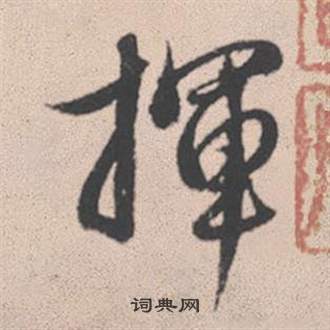 揮
词典网